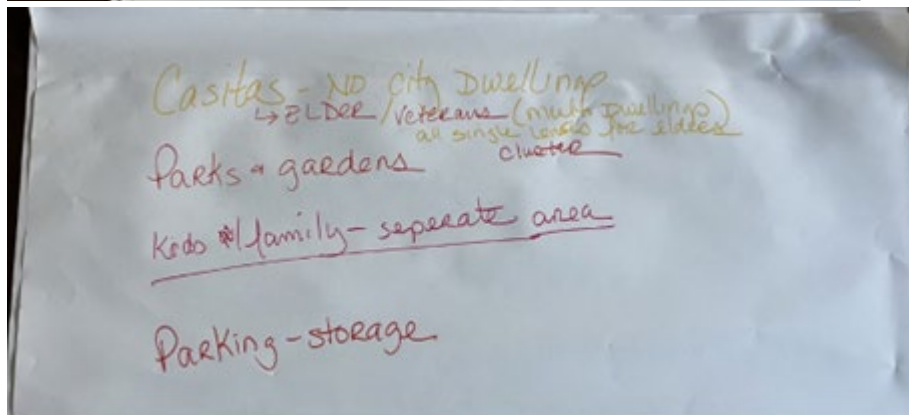 Casitas - NO City Dwellings
↳ ELDER / veterans (multi Dwellings
all single levels for elders
cluster
Parks & gardens
Kids & family - seperate area
Parking - storage